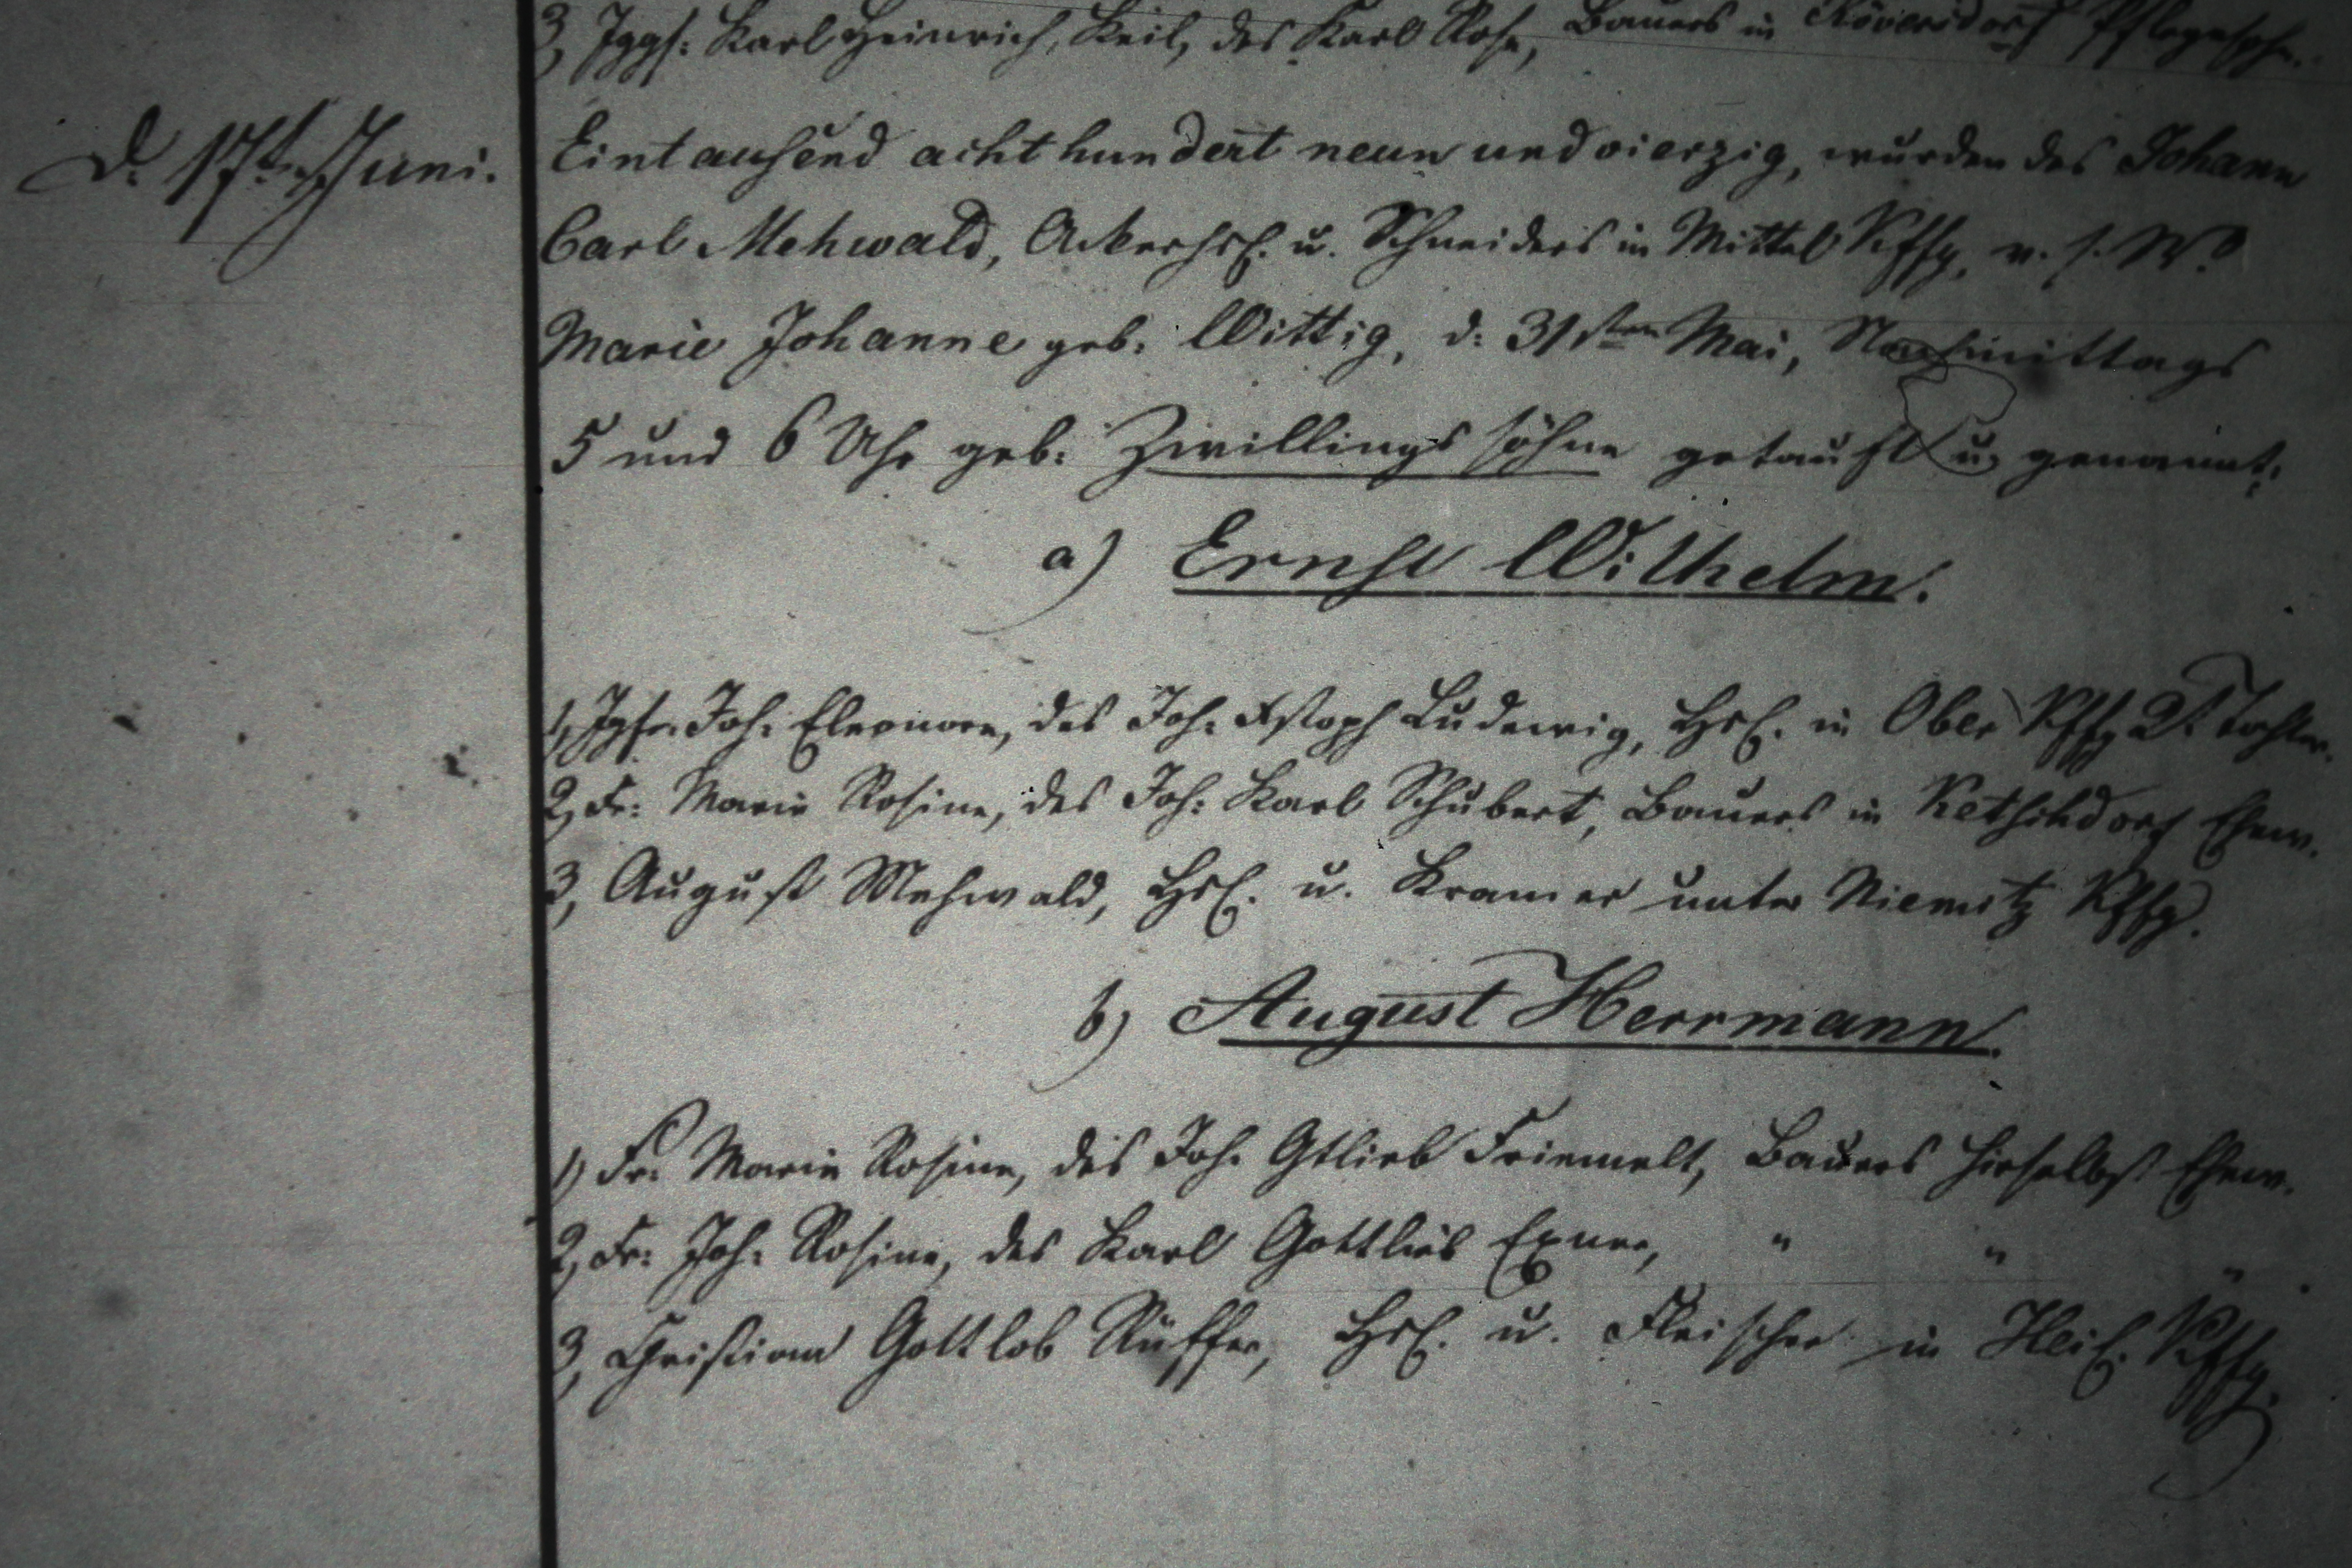 3, Jggs: Karl Heinrich Keil, des Karl Rose, Bauers in Röversdorf Pflegesohn.
d. 17t. Juni.
Eintausend acht hundert neun und vierzig, wurden des Johann
Carl Mehwald, Ackerhsl. u. Schneiders in Mittel Kffg. v. s. W.
Marie Johanne geb. Wittig, d: 31sten Mai, Nachmittags
5 und 6 Uhr geb: Zwillings söhne getauft u. genannt:
a) Ernst Wilhelm.
1, Jgfr. Joh. Eleonore, des Joh. Xstoph Ludewig, Hsl. in Ober Kffg Tochter.
2, Fr: Marie Rosine, des Joh: Karl Schubert, Bauers in Ketschdorf Ehew.
3, August Mehwald, Hsl. u. Kramer unter Niemitz Kffg.
b) August Herrmann.
1) Fr: Marie Rosine, des Joh. Gtlieb Friemelt, Bauers hierselbst Ehew.
2, Fr: Joh: Rosine, des Karl Gottlieb Exner, " " "
3, Christian Gottlob Rüffer, Hsl. u. Fleischer in Heil. Kffg.